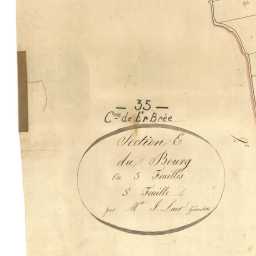 — 35 —
Cne de Er Brée
Section E
du Bourg
en 3 Feuilles
3e Feuille
par Mr J.